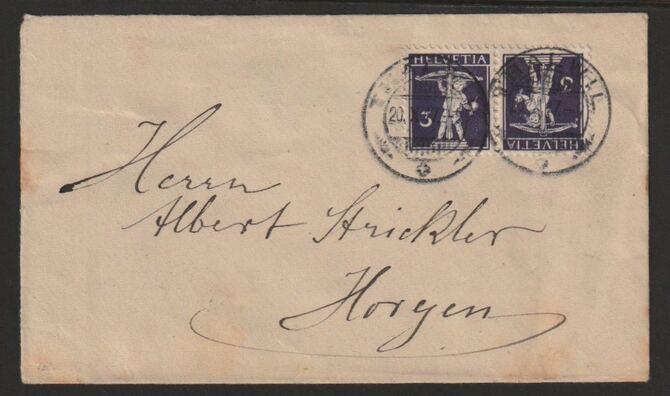 HELVETIA
3
HELVETIA
3
20.
Herrn
Albert Strickler
Horgen